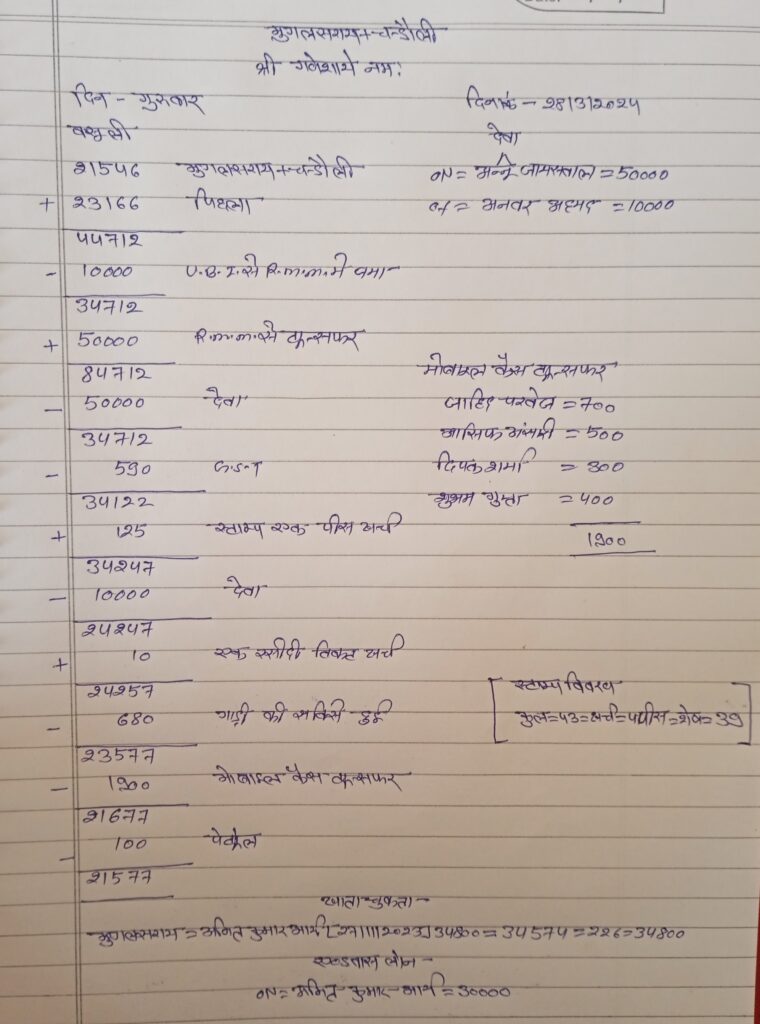 मुगलसराय+चन्डौली
श्री गणेशाये नमः
दिन - गुरुवार दिनांक - 28/3/2024
वसूली देवा
21546 मुगलसराय+चन्डौली ON = मन्नू जायसवाल = 50000
+ 23166 पिछला अनवर अहमद = 10000
44712
- 10000 U.B.I. से R.m.m. मे जमा
34712
+ 50000 R.m.m. से ट्रान्सफर
84712 मोबाइल कैस ट्रान्सफर
- 50000 देवा जाहिद परवेज = 700
34712 आसिफ अंसारी = 500
- 590 G.S.T दिपक शर्मा = 300
34122 शुभम गुप्ता = 400
+ 125 स्टाम्प एक पीस खर्च
1900
34247
- 10000 देवा
24247
+ 10 एक रसीदी टिकट खर्च
24257 [ स्टाम्प विवरण
- 680 गाड़ी की सर्विस हुई कुल=43=खर्च=4पीस=शेष=39 ]
23577
- 1900 मोबाइल कैस ट्रान्सफर
21677
- 100 पेट्रोल
21577
खाता चुकता -
मुगलसराय = अमित कुमार आर्य [27/11/2023] 34800 = 34574 = 226 = 34800
एडवांस लोन -
ON = अमित कुमार आर्य = 30000